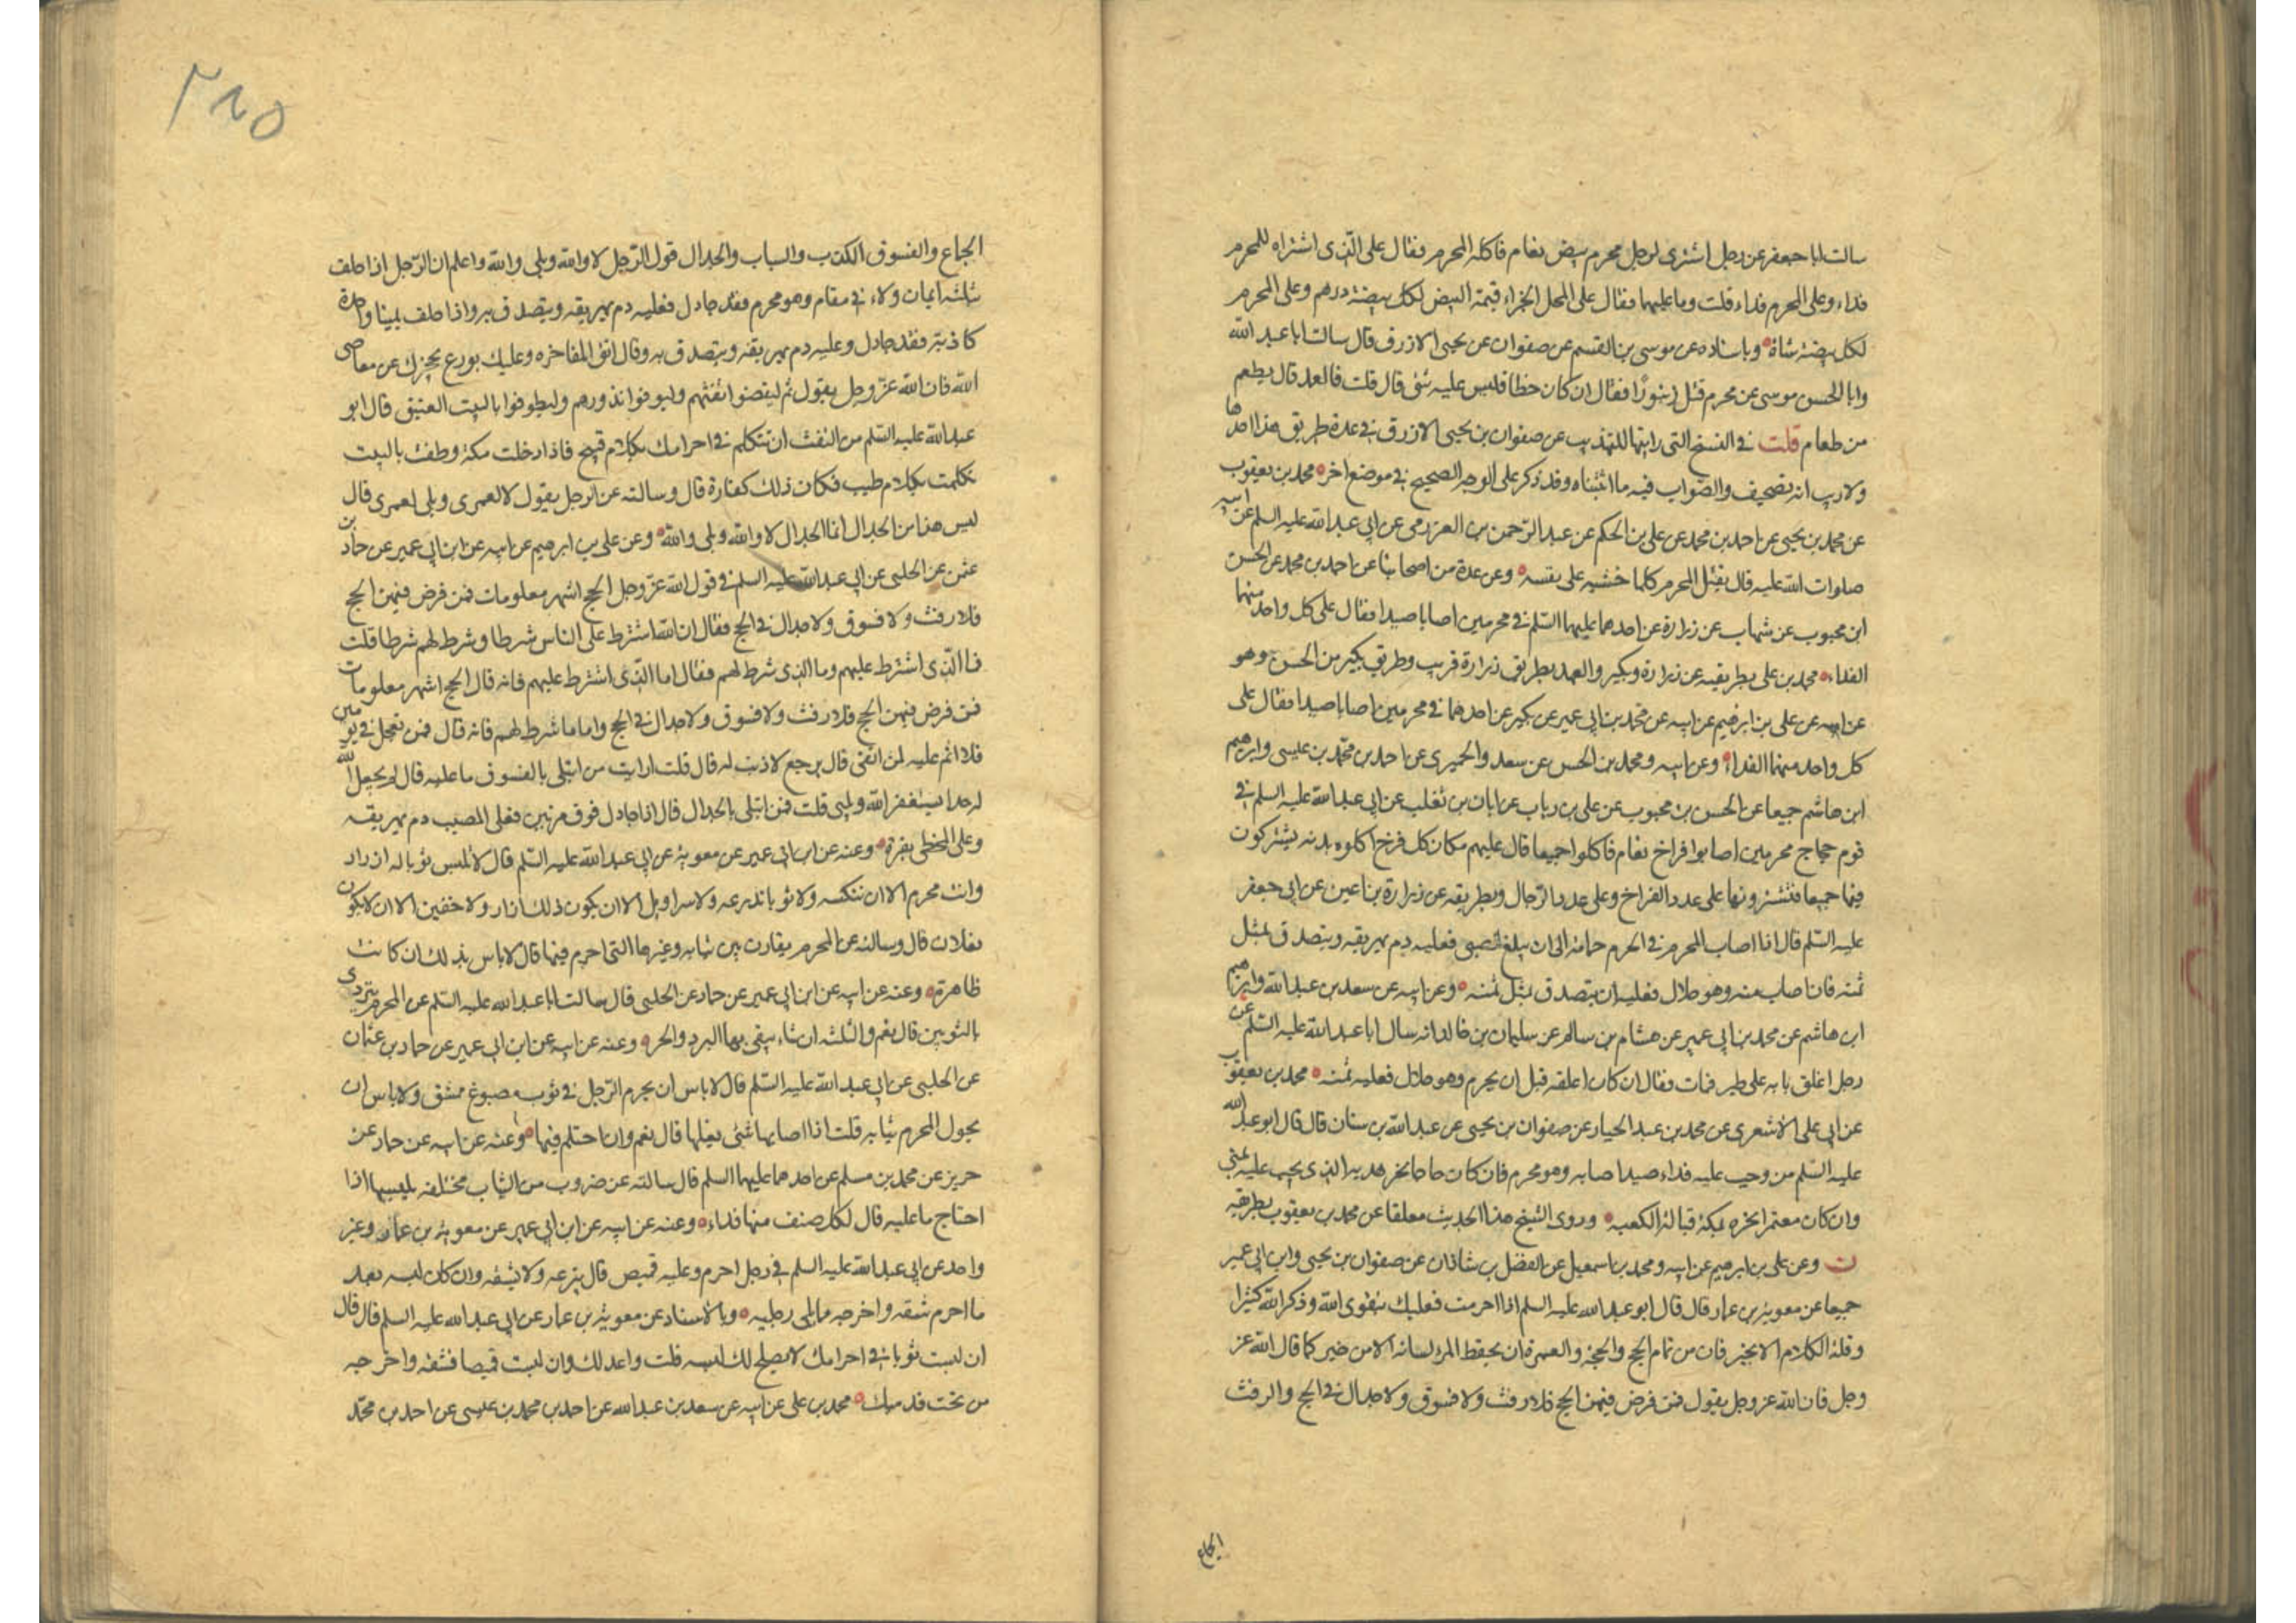 سالت ابا جعفر عن رجل اشترى لرجل محرم بيض نعام فاكله المحرم فقال على الذى اشتراه للمحرم
فداء وعلى المحرم فداء قلت وما عليهما فقال على المحل الجزاء قيمة البيض لكل بيضة درهم وعلى المحرم
لكل بيضة شاة وباسناده عن موسى بن القسم عن صفوان عن يحيى الازرق قال سالت ابا عبد الله
وابا الحسن موسى عن محرم قتل زنبورا فقال ان كان خطا فليس عليه شئ قال قلت فالعمد قال يطعم
من طعام قلت فى النسخ التى رايتها للتهذيب عن صفوان بن يحيى الازرق فى عدة طريق هذا احدها
ولا ريب انه تصحيف والصواب فيه ما اثبتناه وقد ذكر على الوجه الصحيح فى موضع اخر محمد بن يعقوب
عن محمد بن يحيى عن احمد بن محمد عن على بن الحكم عن عبد الرحمن بن العرزمى عن ابى عبد الله عليه السلم عن ابيه
صلوات الله عليه قال يقتل المحرم كلما خشيه على نفسه وعن عدة من اصحابنا عن احمد بن محمد عن الحسن
ابن محبوب عن شهاب عن زرارة عن احدهما عليهما السلم فى محرمين اصابا صيدا فقال على كل واحد منهما
الفداء محمد بن على بطريقيه عن زرارة وبكير والعهد بطريق زرارة قريب وطريق بكير من الحسن وهو
عن ابيه عن على بن ابرهيم عن ابيه عن محمد بن ابى عمير عن بكير عن احدهما فى محرمين اصابا صيدا فقال على
كل واحد منهما الفداء وعن ابيه ومحمد بن الحسن عن سعد والحميرى عن احمد بن محمد بن عيسى وابرهيم
ابن هاشم جميعا عن الحسن بن محبوب عن على بن رياب عن ابان بن تغلب عن ابى عبد الله عليه السلم فى
قوم حجاج محرمين اصابوا افراخ نعام فاكلوا جميعا قال عليهم مكان كل فرخ اكلوه بدنة يشتركون
فيها جميعا فتشترونها على عدد الفراخ وعلى عدد الرجال وبطريقه عن زرارة بن اعين عن ابى جعفر
عليه السلم قال اذا اصاب المحرم فى الحرم حمامة الى ان يبلغ الظبى فعليه دم يهريقه ويتصدق بمثل
ثمنه فان اصاب منه وهو حلال فعليه ان يتصدق بمثل ثمنه وعن ابيه عن سعد بن عبد الله وابرهيم
ابن هاشم عن محمد بن ابى عمير عن هشام بن سالم عن سليمان بن خالد انه سال ابا عبد الله عليه السلم عن
رجل اغلق بابه على طير فمات فقال ان كان اغلقه قبل ان يحرم وهو حلال فعليه ثمنه محمد بن يعقوب
عن ابى على الاشعرى عن محمد بن عبد الجبار عن صفوان بن يحيى عن عبد الله بن سنان قال قال ابو عبد الله
عليه السلم من وجب عليه فداء صيد اصابه وهو محرم فان كان حاجا نحر هديه الذى يجب عليه بمنى
وان كان معتمرا نحره بمكة قبالة الكعبه وروى الشيخ هذا الحديث معلقا عن محمد بن يعقوب بطريقه
ن وعن على بن ابرهيم عن ابيه ومحمد بن اسمعيل عن الفضل بن شاذان عن صفوان بن يحيى وابن ابى عمير
جميعا عن معوية بن عمار قال قال ابو عبد الله عليه السلم اذا احرمت فعليك بتقوى الله وذكر الله كثيرا
وقلة الكلام الا بخير فان من تمام الحج والعمرة ان يحفظ المرء لسانه الا من خير كما قال الله عز
وجل فان الله عز وجل يقول فمن فرض فيهن الحج فلا رفث ولا فسوق ولا جدال فى الحج والرفث
الجماع
٢١٥
الجماع والفسوق الكذب والسباب والجدال قول الرجل لا والله وبلى والله واعلم ان الرجل اذا حلف
بثلثة ايمان ولاء فى مقام وهو محرم فقد جادل فعليه دم يهريقه ويتصدق به واذا حلف يمينا واحدة
كاذبة فقد جادل وعليه دم يهريقه ويتصدق به وقال اتق المفاخره وعليك بورع يحجزك عن معاصى
الله فان الله عز وجل يقول ثم ليقضوا تفثهم وليوفوا نذورهم وليطوفوا بالبيت العتيق قال ابو
عبد الله عليه السلم من التفث ان تتكلم فى احرامك بكلام قبيح فاذا دخلت مكة وطفت بالبيت
تكلمت بكلام طيب فكان ذلك كفارة قال وسالته عن الرجل يقول لا لعمرى وبلى لعمرى قال
ليس هذا من الجدال انما الجدال لا والله وبلى والله وعن على بن ابرهيم عن ابيه عن ابن ابى عمير عن حماد بن
عثمن عن الحلبى عن ابى عبد الله عليه السلم فى قول الله عز وجل الحج اشهر معلومات فمن فرض فيهن الحج
فلا رفث ولا فسوق ولا جدال فى الحج فقال ان الله اشترط على الناس شرطا وشرط لهم شرطا قلت
فما الذى اشترط عليهم وما الذى شرط لهم فقال اما الذى اشترط عليهم فانه قال الحج اشهر معلومات
فمن فرض فيهن الحج فلا رفث ولا فسوق ولا جدال فى الحج واما ما شرط لهم فانه قال فمن تعجل فى يومين
فلا اثم عليه لمن اتقى قال يرجع لا ذنب له قال قلت ارايت من ابتلى بالفسوق ما عليه قال لم يجعل الله
له حدا يستغفر الله ويلبى قلت فمن ابتلى بالجدال قال اذا جادل فوق مرتين فعلى المصيب دم يهريقه
وعلى المخطى بقرة وعنه عن ابن ابى عمير عن معوية عن ابى عبد الله عليه السلم قال لا تلبس ثوبا له ازرار
وانت محرم الا ان تنكسه ولا ثوبا تدرعه ولا سراويل الا ان يكون ذلك ازار ولا خفين الا ان لا يكون
نعلان قال وسالته عن المحرم يقارن بين ثيابه وغيرها التى احرم فيها قال لا باس بذلك ان كانت
ظاهرة وعنه عن ابيه عن ابن ابى عمير عن حماد عن الحلبى قال سالت ابا عبد الله عليه السلم عن المحرم يتردى
بالثوبين قال نعم والثلثة ان شاء يتقى بها البرد والحر وعنه عن ابيه عن ابن ابى عمير عن حماد بن عثمان
عن الحلبى عن ابى عبد الله عليه السلم قال لا باس ان يحرم الرجل فى ثوب مصبوغ ممشق ولا باس ان
يحول المحرم ثيابه قلت اذا اصابها شئ يغسلها قال نعم وان احتلم فيها وعنه عن ابيه عن حماد عن
حريز عن محمد بن مسلم عن احدهما عليهما السلم قال سالته عن ضروب من الثياب مختلفه يلبسها اذا
احتاج ما عليه قال لكل صنف منها فداء وعنه عن ابيه عن ابن ابى عمير عن معوية بن عمار وغير
واحد عن ابى عبد الله عليه السلم فى رجل احرم وعليه قميص قال ينزعه ولا يشقه وان كان لبسه بعد
ما احرم شقه واخرجه مما يلى رجليه وبالاسناد عن معوية بن عمار عن ابى عبد الله عليه السلم قال قال
ان لبست ثوبا فى احرامك لا يصلح لك لبسه فلت واعد لك وان لبست قميصا فشقه واخرجه
من تحت قدميك محمد بن على عن ابيه عن سعد بن عبد الله عن احمد بن محمد بن عيسى عن احمد بن محمد